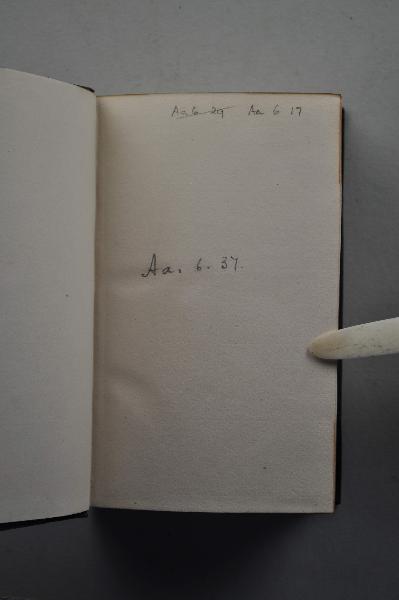 Aa 6 29 Aa 6 17
Aa. 6. 37.